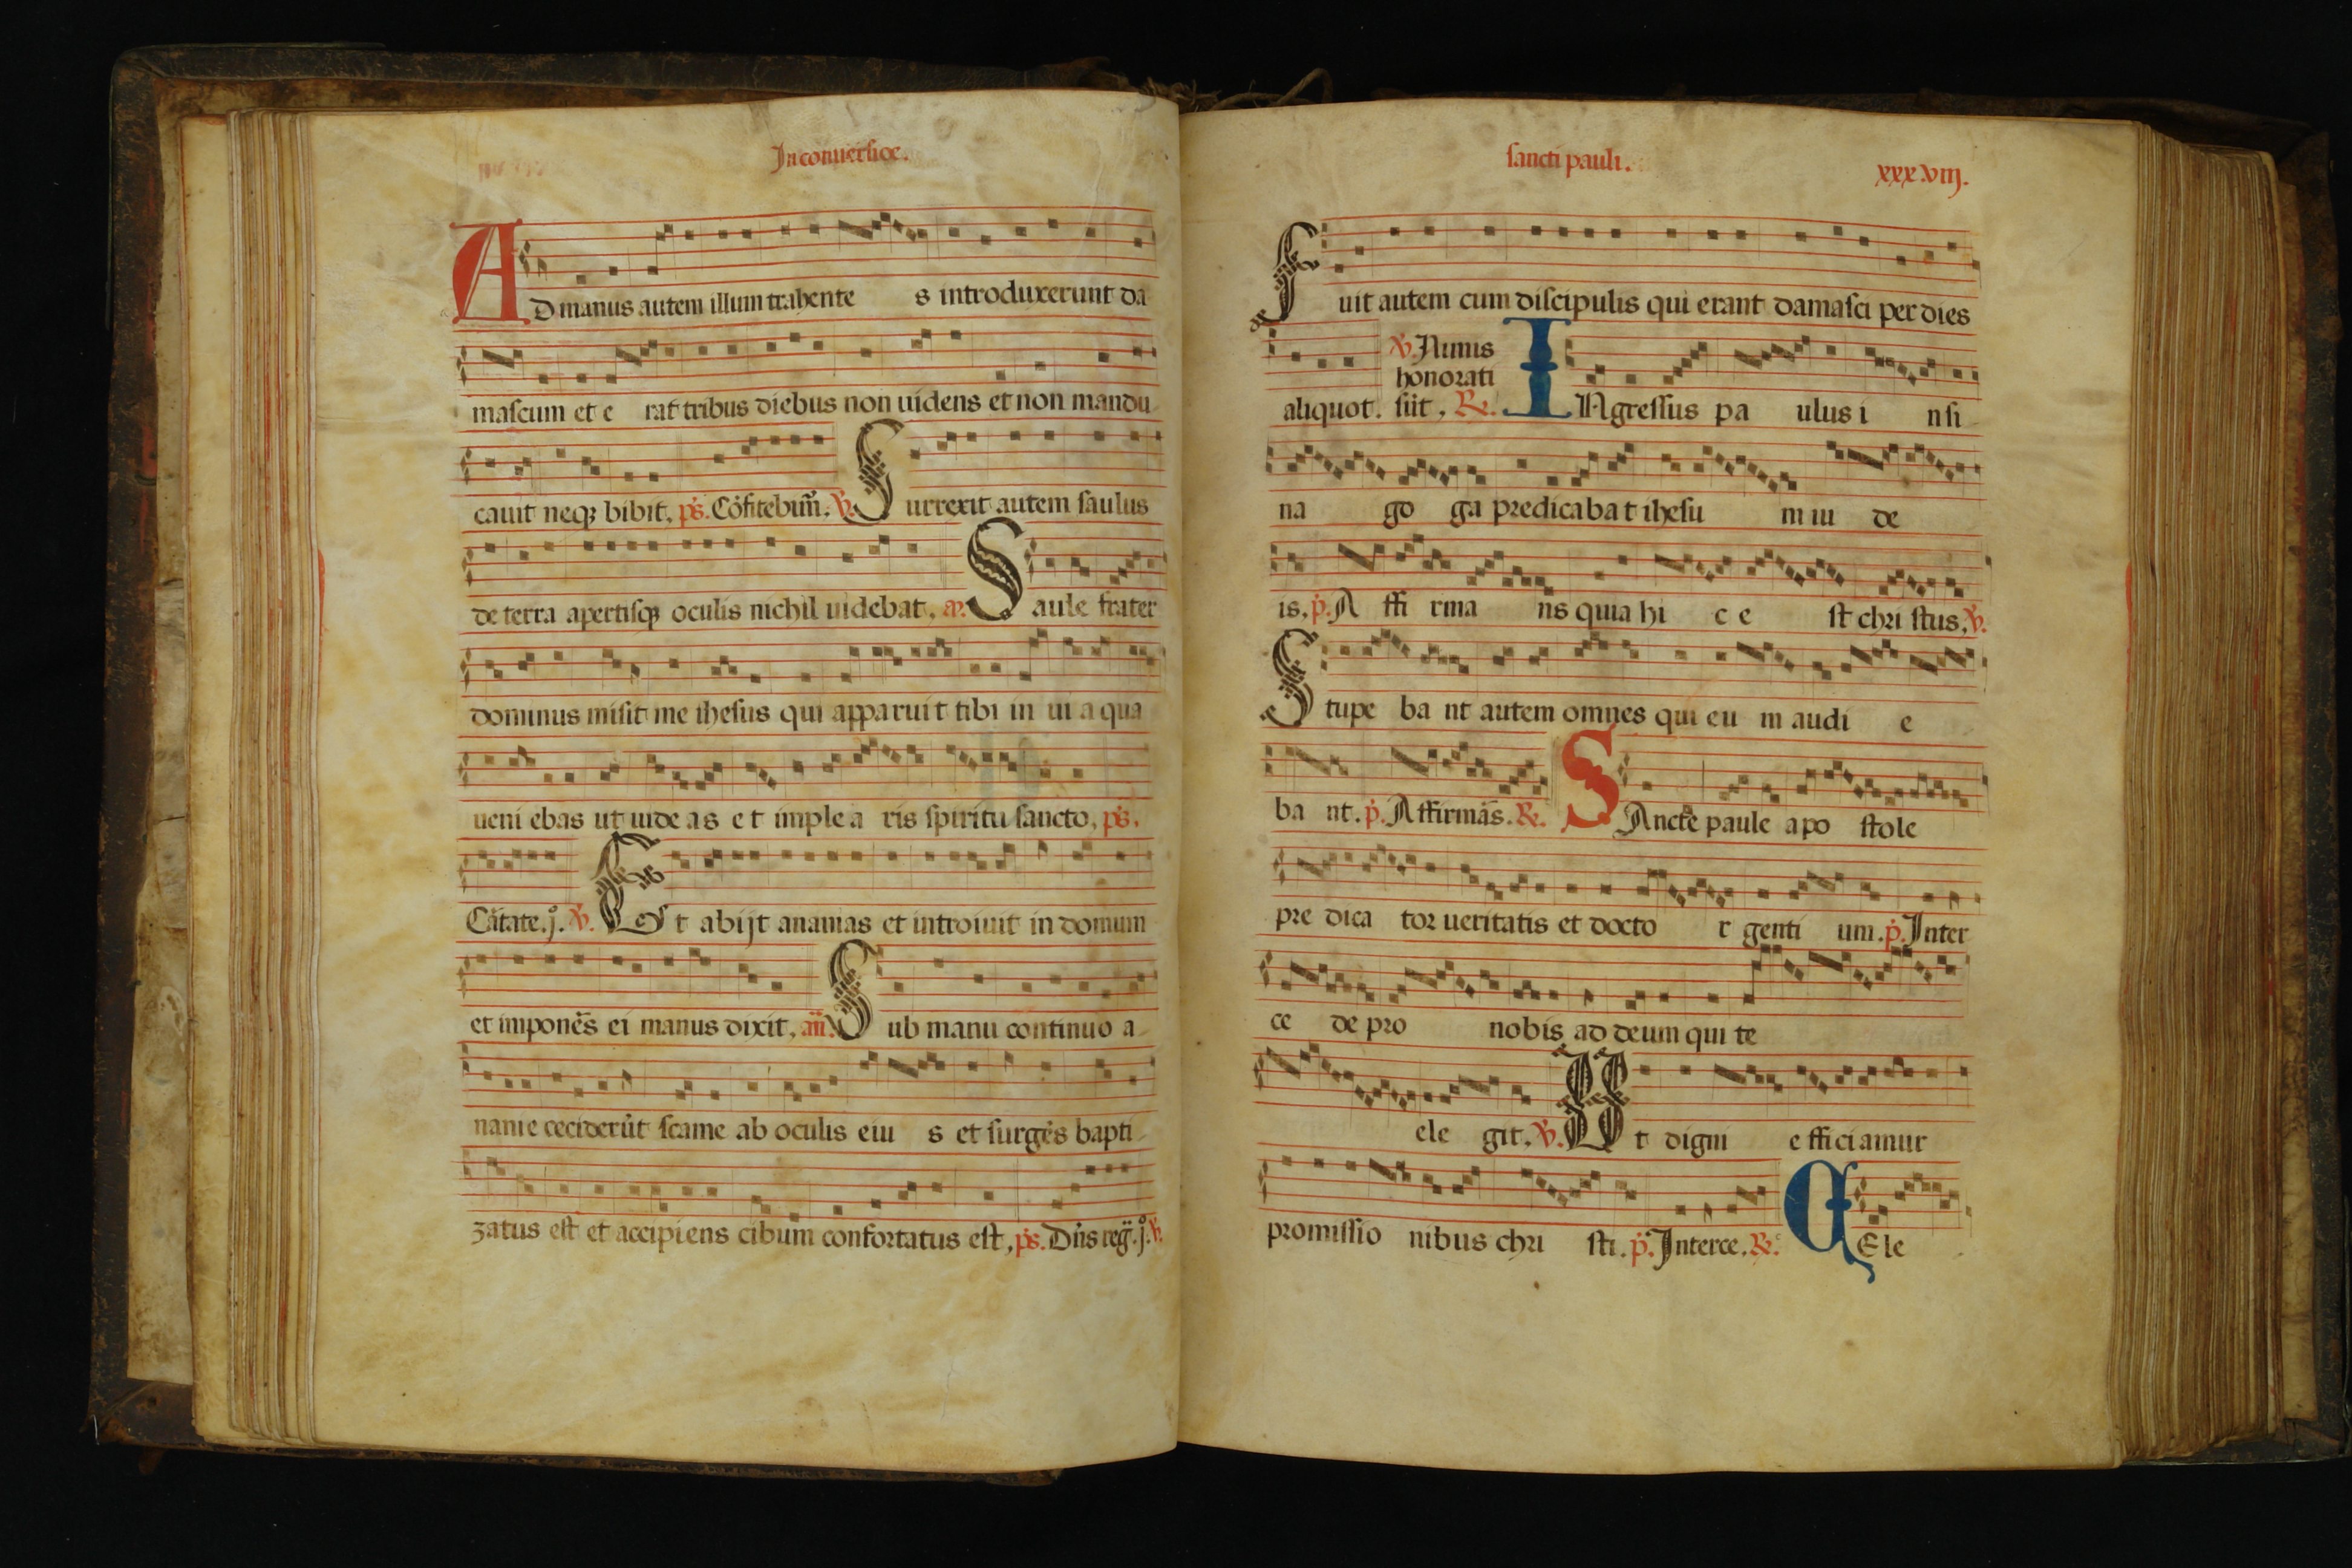 In conuersioe.
AD manus autem illum trahente s introduxerunt da
mascum et e rat tribus diebus non uidens et non mandu
cauit neq; bibit, ps. Cōfitebim̄. V. Surrexit autem saulus
de terra apertisq; oculis nichil uidebat, an. Saule frater
dominus misit me ihesus qui apparuit tibi in ui a qua
ueni ebas ut uide as e t imple a ris spiritu sancto, ps.
Cātate. j. V. Et abijt ananias et introiuit in domum
et imponēs ei manus dixit, an. Sub manu continuo a
nanie ceciderūt scame ab oculis eiu s et surgēs bapti
zatus est et accipiens cibum confortatus est, ps. Dn̄s reg. j. V.
sancti pauli. xxxviij.
Fuit autem cum discipulis qui erant damasci per dies
V. Nimis
honorati
aliquot. sūt, R. INgressus pa ulus i nsi
na go ga predicaba t ihesu m iu de
is, p. A ffi rma ns quia hi c e st chri stus, V.
Stupe ba nt autem omnes qui eu m audi e
ba nt. p. Affirmās. R. SAncte paule apo stole
pre dica tor ueritatis et docto r genti um. p. Inter
ce de pro nobis ad deum qui te
ele git. V. Ut digni e fficiamur
promissio nibus chri sti. p. Interce. R. CEle